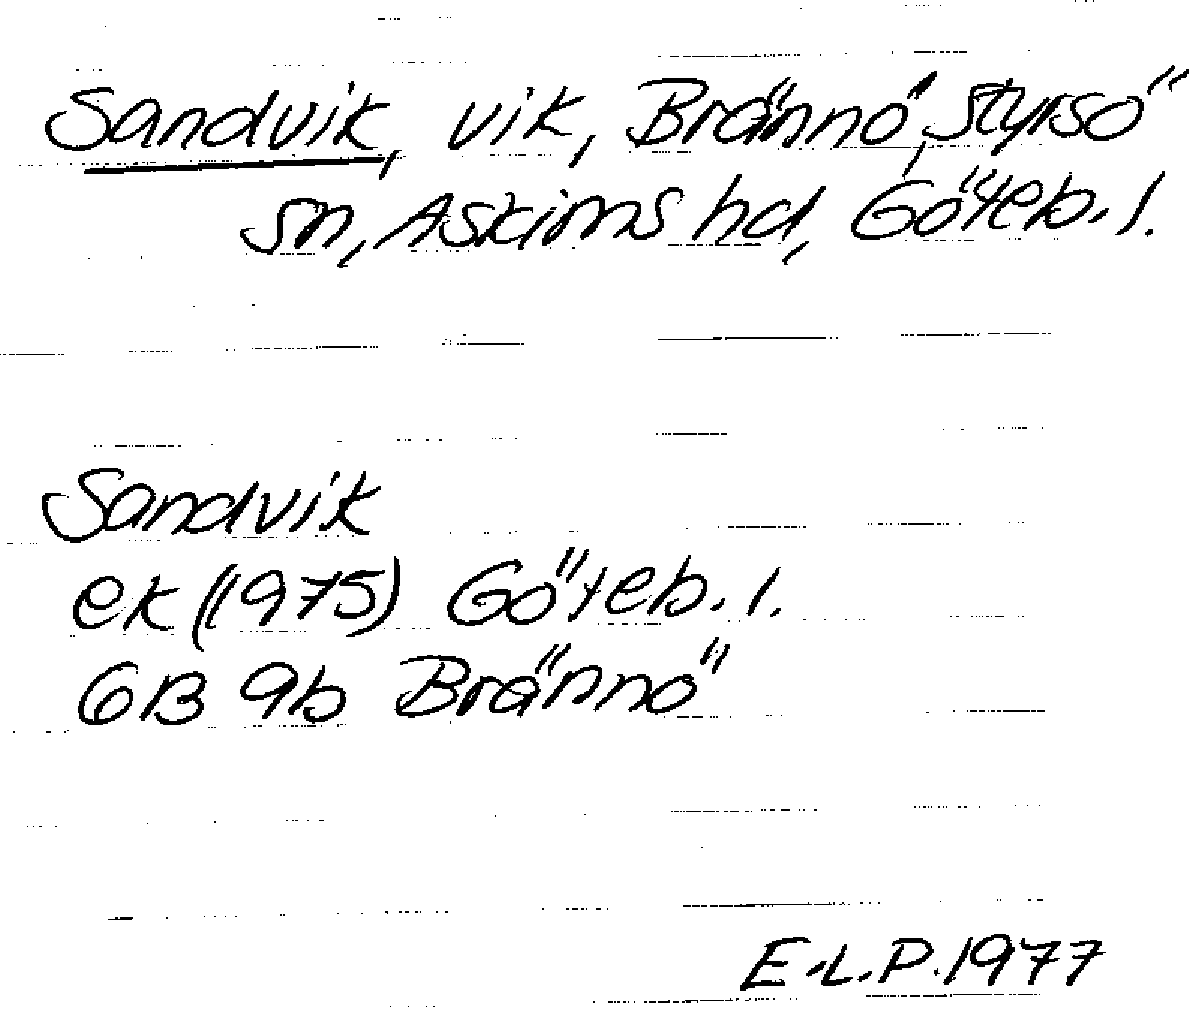 Sandvik, vik, Brännö, Styrsö
sn, Askims hd, Göteb. l.
Sandvik
ek (1975) Göteb. l.
6B 9b Brännö
E-L.P. 1977